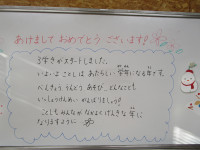 あけまして おめでとう ございます!
3学きがスタートしました。
いよいよ ことしは あたらしい 学年になる年です。
べんきょう うんどう あそび、どんなことも
いっしょうけんめい がんばりましょう!
ことしも みんなが なかよく けんきな 年に
なりますように